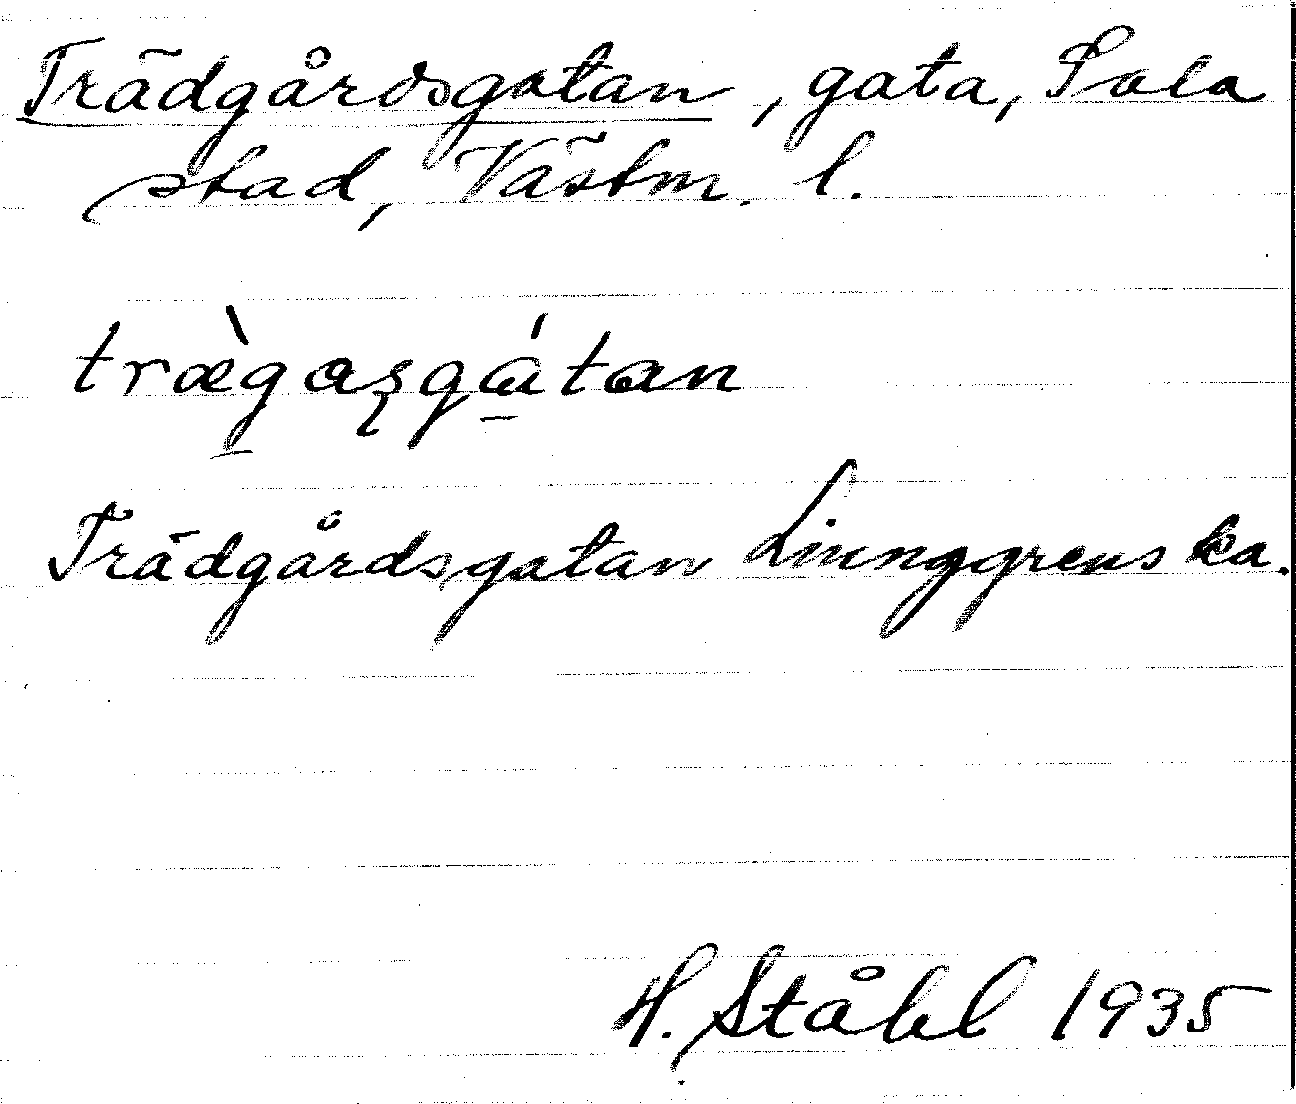 Trädgårdsgatan, gata, Sala
stad, Västm. l.
træ̀gaʂgátan
Trädgårdsgatan Linnggrens ka.
H. Ståhl 1935